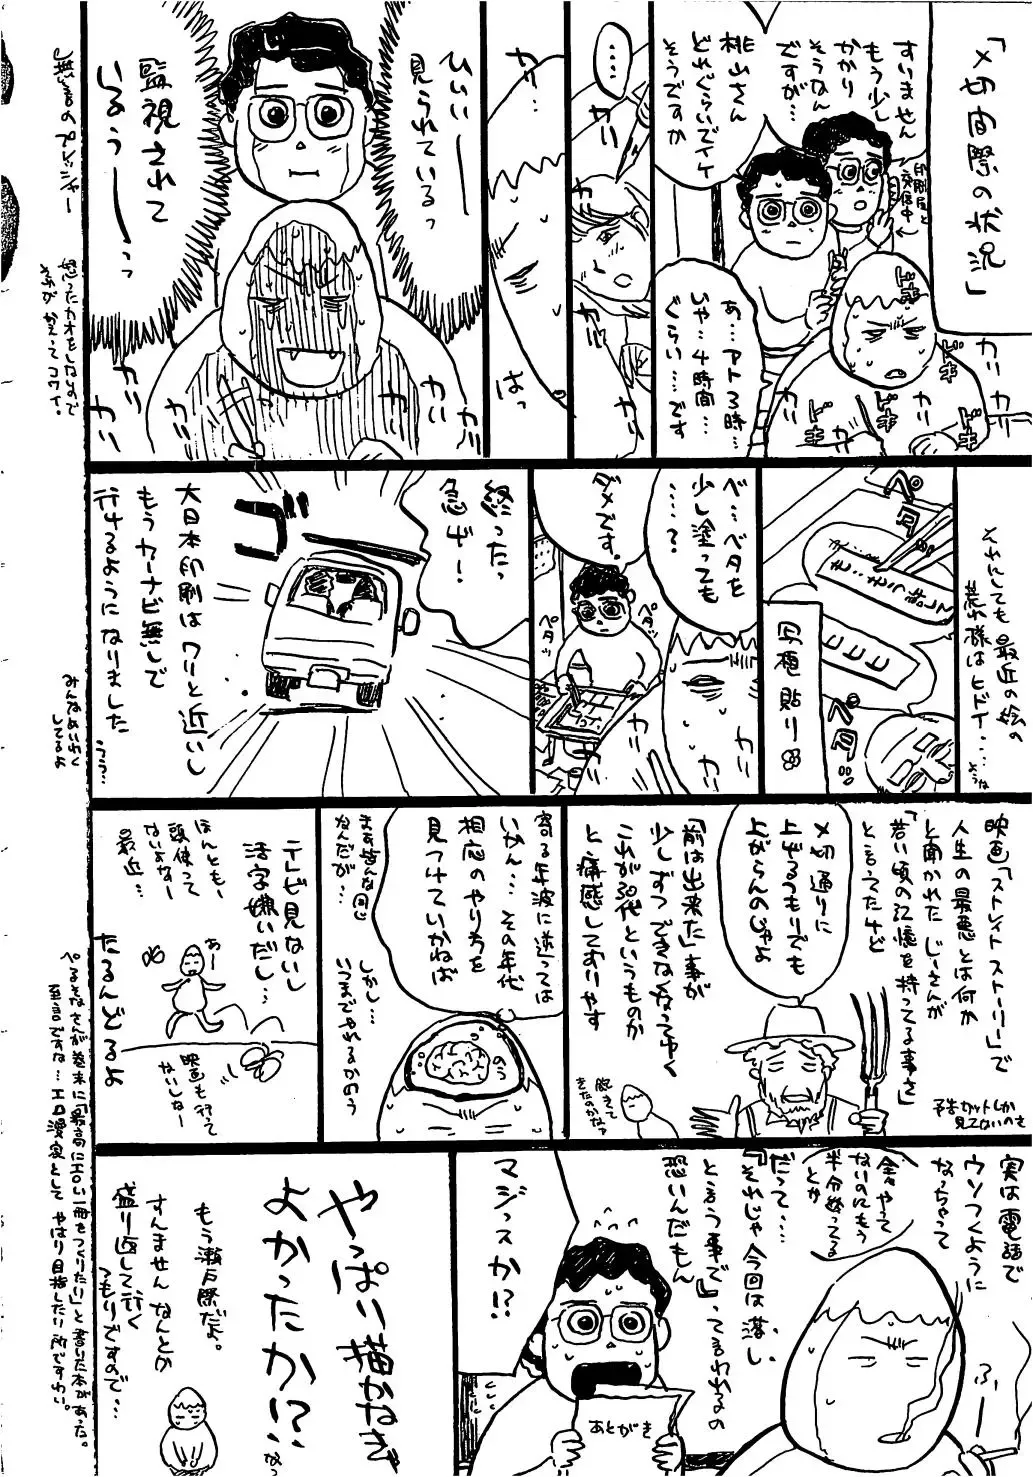 「〆切間際の状況」
すいません
もう少し
かかり
そうなん
ですが…
印刷屋と
交信中
桃山さん
どれぐらいでイケ
そうですか
あ…アト3時…
いや…4時間…
ぐらい……です
ドキ
ドキ
ドキ
ドキ
ドキ
カリ
カリ
カリ
……
カリ
カリ
カリ…
はっ
ひいいー
見られているっ
監視されて
いるぅーーっっ
カリ
カリ
カリ
カリ
無言のプレッシャー
怒ったカオをしないので
それがかえってコワイ。
それにしても最近の絵の
荒れ様はヒドイ…
ペタ
ペタ
写植貼り
ベ…ベタを
少し塗っても
……?
ダメです。
ペタッ
ペタッ
カリ
カリ
終ったっ
急げー!
ゴ
大日本印刷はワリと近いし
もうカーナビ無しで
行けるようになりました
うう…
みんなめいわく
してるよ
映画「ストレイトストーリー」で
人生の最悪とは何か
と聞かれたじーさんが
「若い頃の記憶を持ってる事さ」
と言ってたけど
予告カットしか
見てないのさ
〆切通りに
上げるつもりでも
上がらんのじゃよ
「前は出来た」事が
少しずつできなくなってゆく
これが30代というものか
と痛感しております
飽きて
きたのかなァ
寄る年波に逆っては
いかん…その年代
相応のやり方を
見つけていかねば
まァ皆んな同じ
なんだが…
しかし…
いつまでやれるかのう
のう
テレビ見ないし
活字嫌いだし…
ほんともー
頭使って
ないよなー
最近…
あー
映画も行って
ないしなー
たるんどるよ
ぺるそなさんが巻末に「最高にエロい一冊をつくりたい」と書いた本があった。
至言ですな…エロ漫家としてやはり目指したい所ですわい。
実は電話で
ウソつくように
なっちゃって
全々やって
ないのにもう
半分終ってる
とか
ふー
だって…
『それじゃ今回は落し
という事で』って言われるの
恐いんだもん
マジっスか!?
あとがき
やっぱり描かねぎ
よかったか!?
なっ
もう瀬戸際だよ。
すんませんなんとか
盛り返して行く
つもりですので…